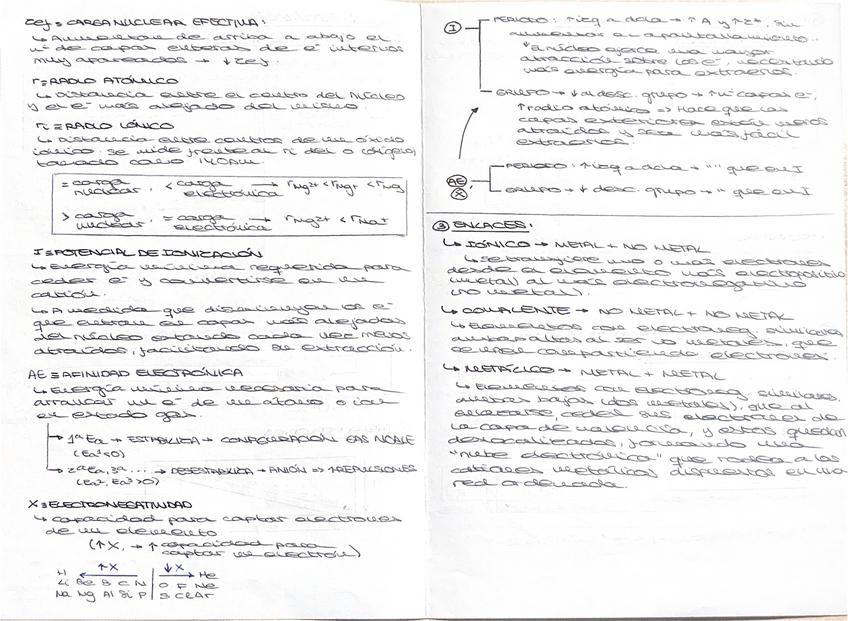 Zef ≡ CARGA NUCLEAR EFECTIVA:
↳ Aumentan de arriba a abajo el
nº de capas enteras de e⁻ internos
muy apareados → ↓Zef.
r ≡ RADIO ATÓMICO
↳ distancia entre el centro del Núcleo
y el e⁻ más alejado del mismo.
ri ≡ RADIO IÓNICO
↳ distancia entre centros de un óxido
iónico. se mide frente al ri del O (oxígeno,
tarado como 140pm.
= carga nuclear, < carga electrónica → rMg2+ < rMg+ < rMg
> carga nuclear, = carga electrónica → rMg2+ < rNa+
I ≡ POTENCIAL DE IONIZACIÓN
↳ Energía mínima requerida para
ceder e⁻ y convertirse en un
catión.
↳ A medida que disminuyen los e⁻
que entran en capas más alejadas
del Núcleo estando cada vez menos
atraídos, facilitando su extracción.
AE ≡ AFINIDAD ELECTRÓNICA
↳ Energía mínima necesaria para
arrancar un e⁻ de un átomo o ion
en estado gas.
→ 1ª Ea → ESTABILIZA → CONFIGURACIÓN GAS NOBLE
(Ea¹<0)
→ 2ªEa, 3ª... → DESESTABILIZA → ANIÓN => ↑REPULSIONES
(Ea², Ea³>0)
X ≡ ELECTRONEGATIVIDAD
↳ capacidad para captar electrones
de un elemento
(↑X, → ↑ capacidad para
captar un electrón)
↑X ↓X
H He
Li Be B C N | O F Ne
Na Mg Al Si P | S Cl Ar
I
PERIODO: ↑izq a dcha → ↑A y ↑Z*. Sin
aumentar el apantallamiento.
↓
el núcleo ejerce una mayor
atracción sobre los e⁻, necesitando
más energía para extraerlos.
GRUPO → ↓ al desc. grupo → ↑nº capas e⁻,
↑radio atómico => Hace que las
capas exteriores estén menos
atraídos y sea más fácil
extraerlos.
AE
X
PERIODO: ↑izq a dcha → "" que en I
GRUPO → ↓ desc. grupo → " que en I
③ ENLACES:
↳ IÓNICO → METAL + NO METAL
↳ se transfiere uno o más electrones
desde el elemento más electropositivo
(metal) al más electronegativo
(no metal).
↳ COVALENTE → NO METAL + NO METAL
↳ Elementos con electroneg. similares
ambas altas al ser no metales, que
se unen compartiendo electrones.
↳ METÁLICO → METAL + METAL
↳ Elementos con electroneg. similares,
ambas bajas (dos metales), que al
enlazarse, ceden sus electrones de
la capa de valencia, y estos quedan
deslocalizados, formando una
"nube electrónica" que rodea a los
cationes metálicos dispuestos en una
red ordenada.